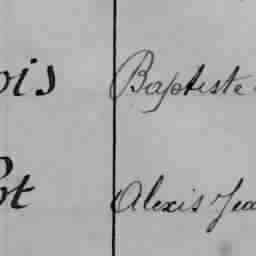 ois Baptiste
ot Alexis Jea